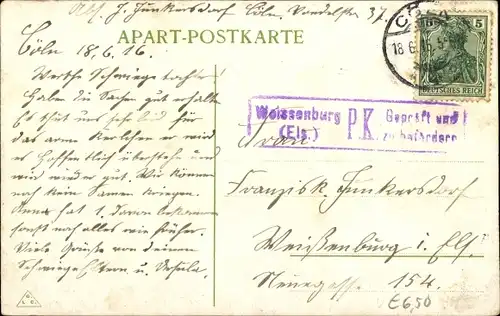 Abs. J. Junkersdorf Cöln, Vondelstr 37.
APART-POSTKARTE
Cöln 18.6.16.
Werthe Schwiegertochter
Haben die Sachen gut erhalten
Es thut uns sehr leid für
das arme Kerlchen er wird
es hoffentlich überstehn und
wird wieder gut. Wir können
noch kein Samen kriegen.
Anna hat 1. davon bekommen
sonst noch alles wie früher.
Viele Grüße von deinen
Schwiegereltern u. Ursula.
18.6.16
5
DEUTSCHES REICH
Weissenburg (Els.) P.K. Geprüft und zu befördern
Frau
Franzisk. Junkersdorf
Weißenburg i. Els.
Neuegasse 154.
€6,50